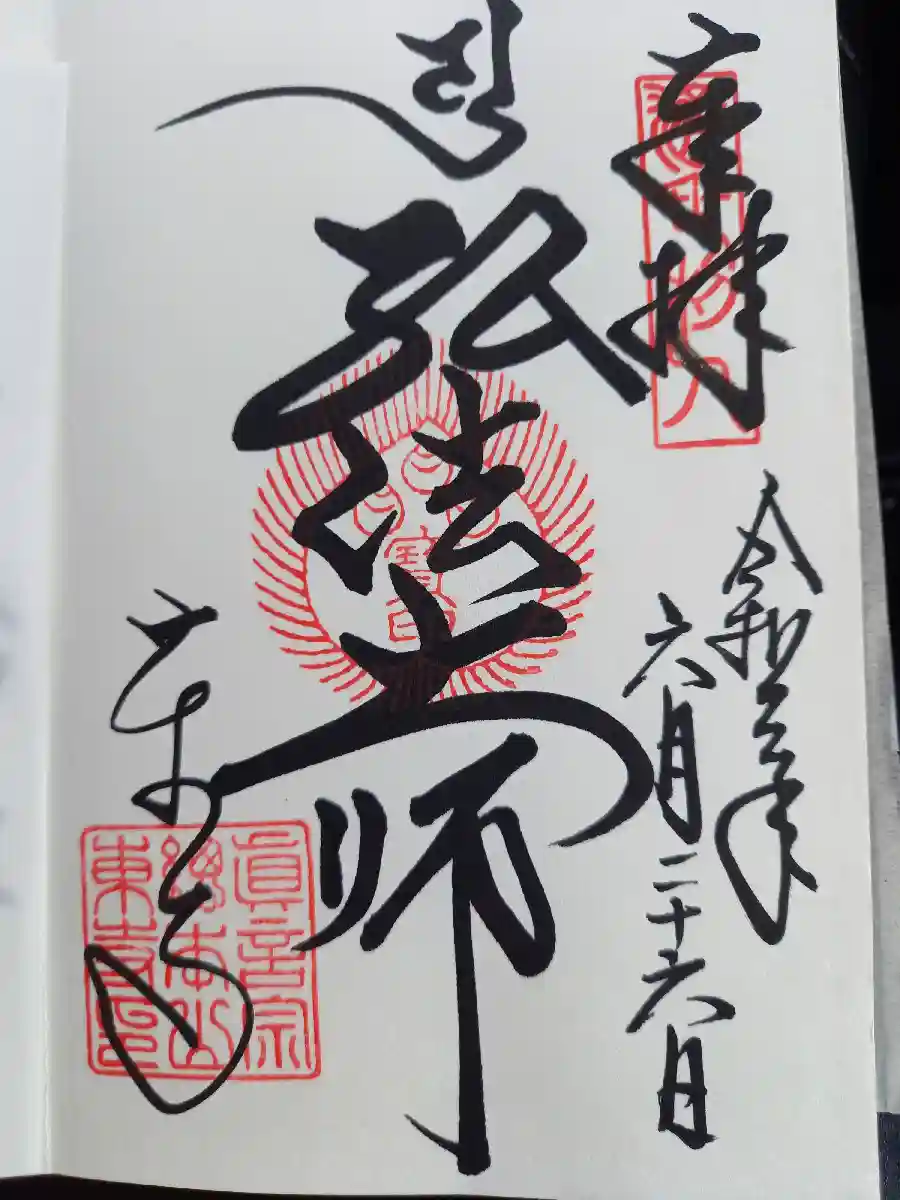 奉拝
令和三年
六月二十六日
弘法大師
東寺
眞言宗
總本山
東寺印